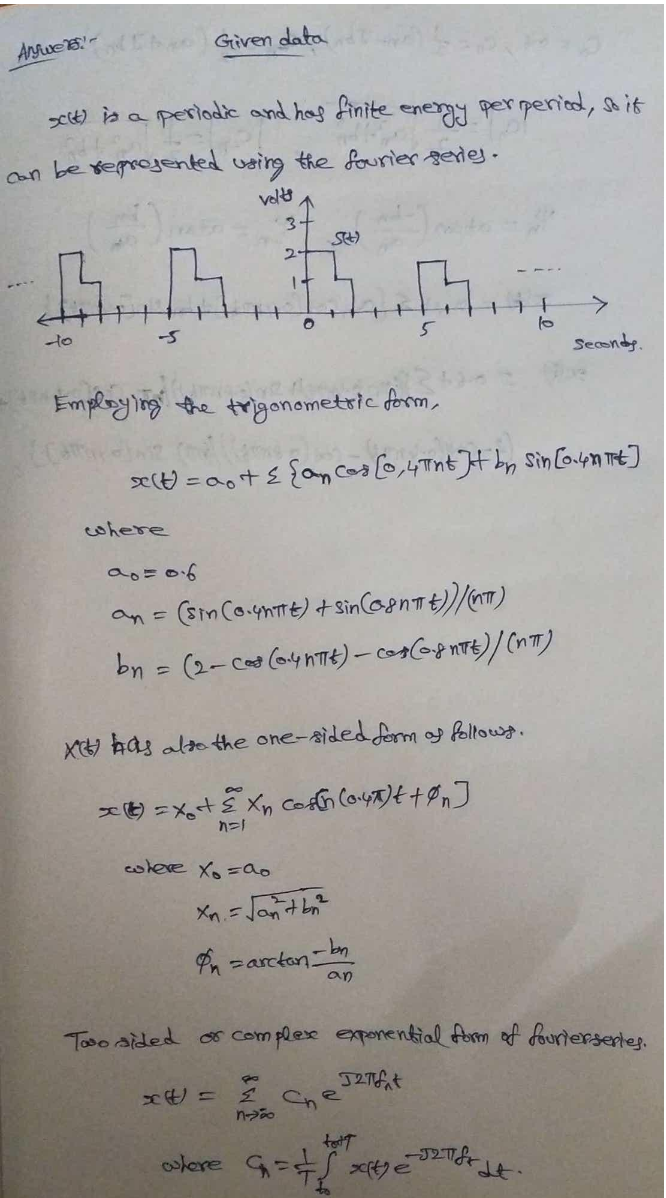 Answers:- Given data
x(t) is a periodic and has finite energy per period, so it
can be represented using the fourier series.
volts
3
S(t)
2
1
-10 -5 0 5 10
seconds.
Employing the trigonometric form,
x(t) = a₀ + Σ {aₙ cos [0,4πnt] + bₙ sin [0.4nπt]
where
a₀ = 0.6
aₙ = (sin(0.4nπt) + sin(0.8nπt))/(nπ)
bₙ = (2 - cos(0.4nπt) - cos(0.8nπt)/(nπ)
X(t) has also the one-sided form as follows.
x(t) = X₀ + Σ_{n=1}^{∞} Xₙ cos[n(0.4π)t + Øₙ]
where X₀ = a₀
Xₙ = √(aₙ² + bₙ²)
Øₙ = arctan -bₙ/aₙ
Two sided or complex exponential form of fourier series.
x(t) = Σ_{n→-∞}^{∞} Cₙ e^{J2πfₙt}
where Cₙ = 1/T ∫_{t₀}^{t₀+T} x(t) e^{-J2πft} dt.